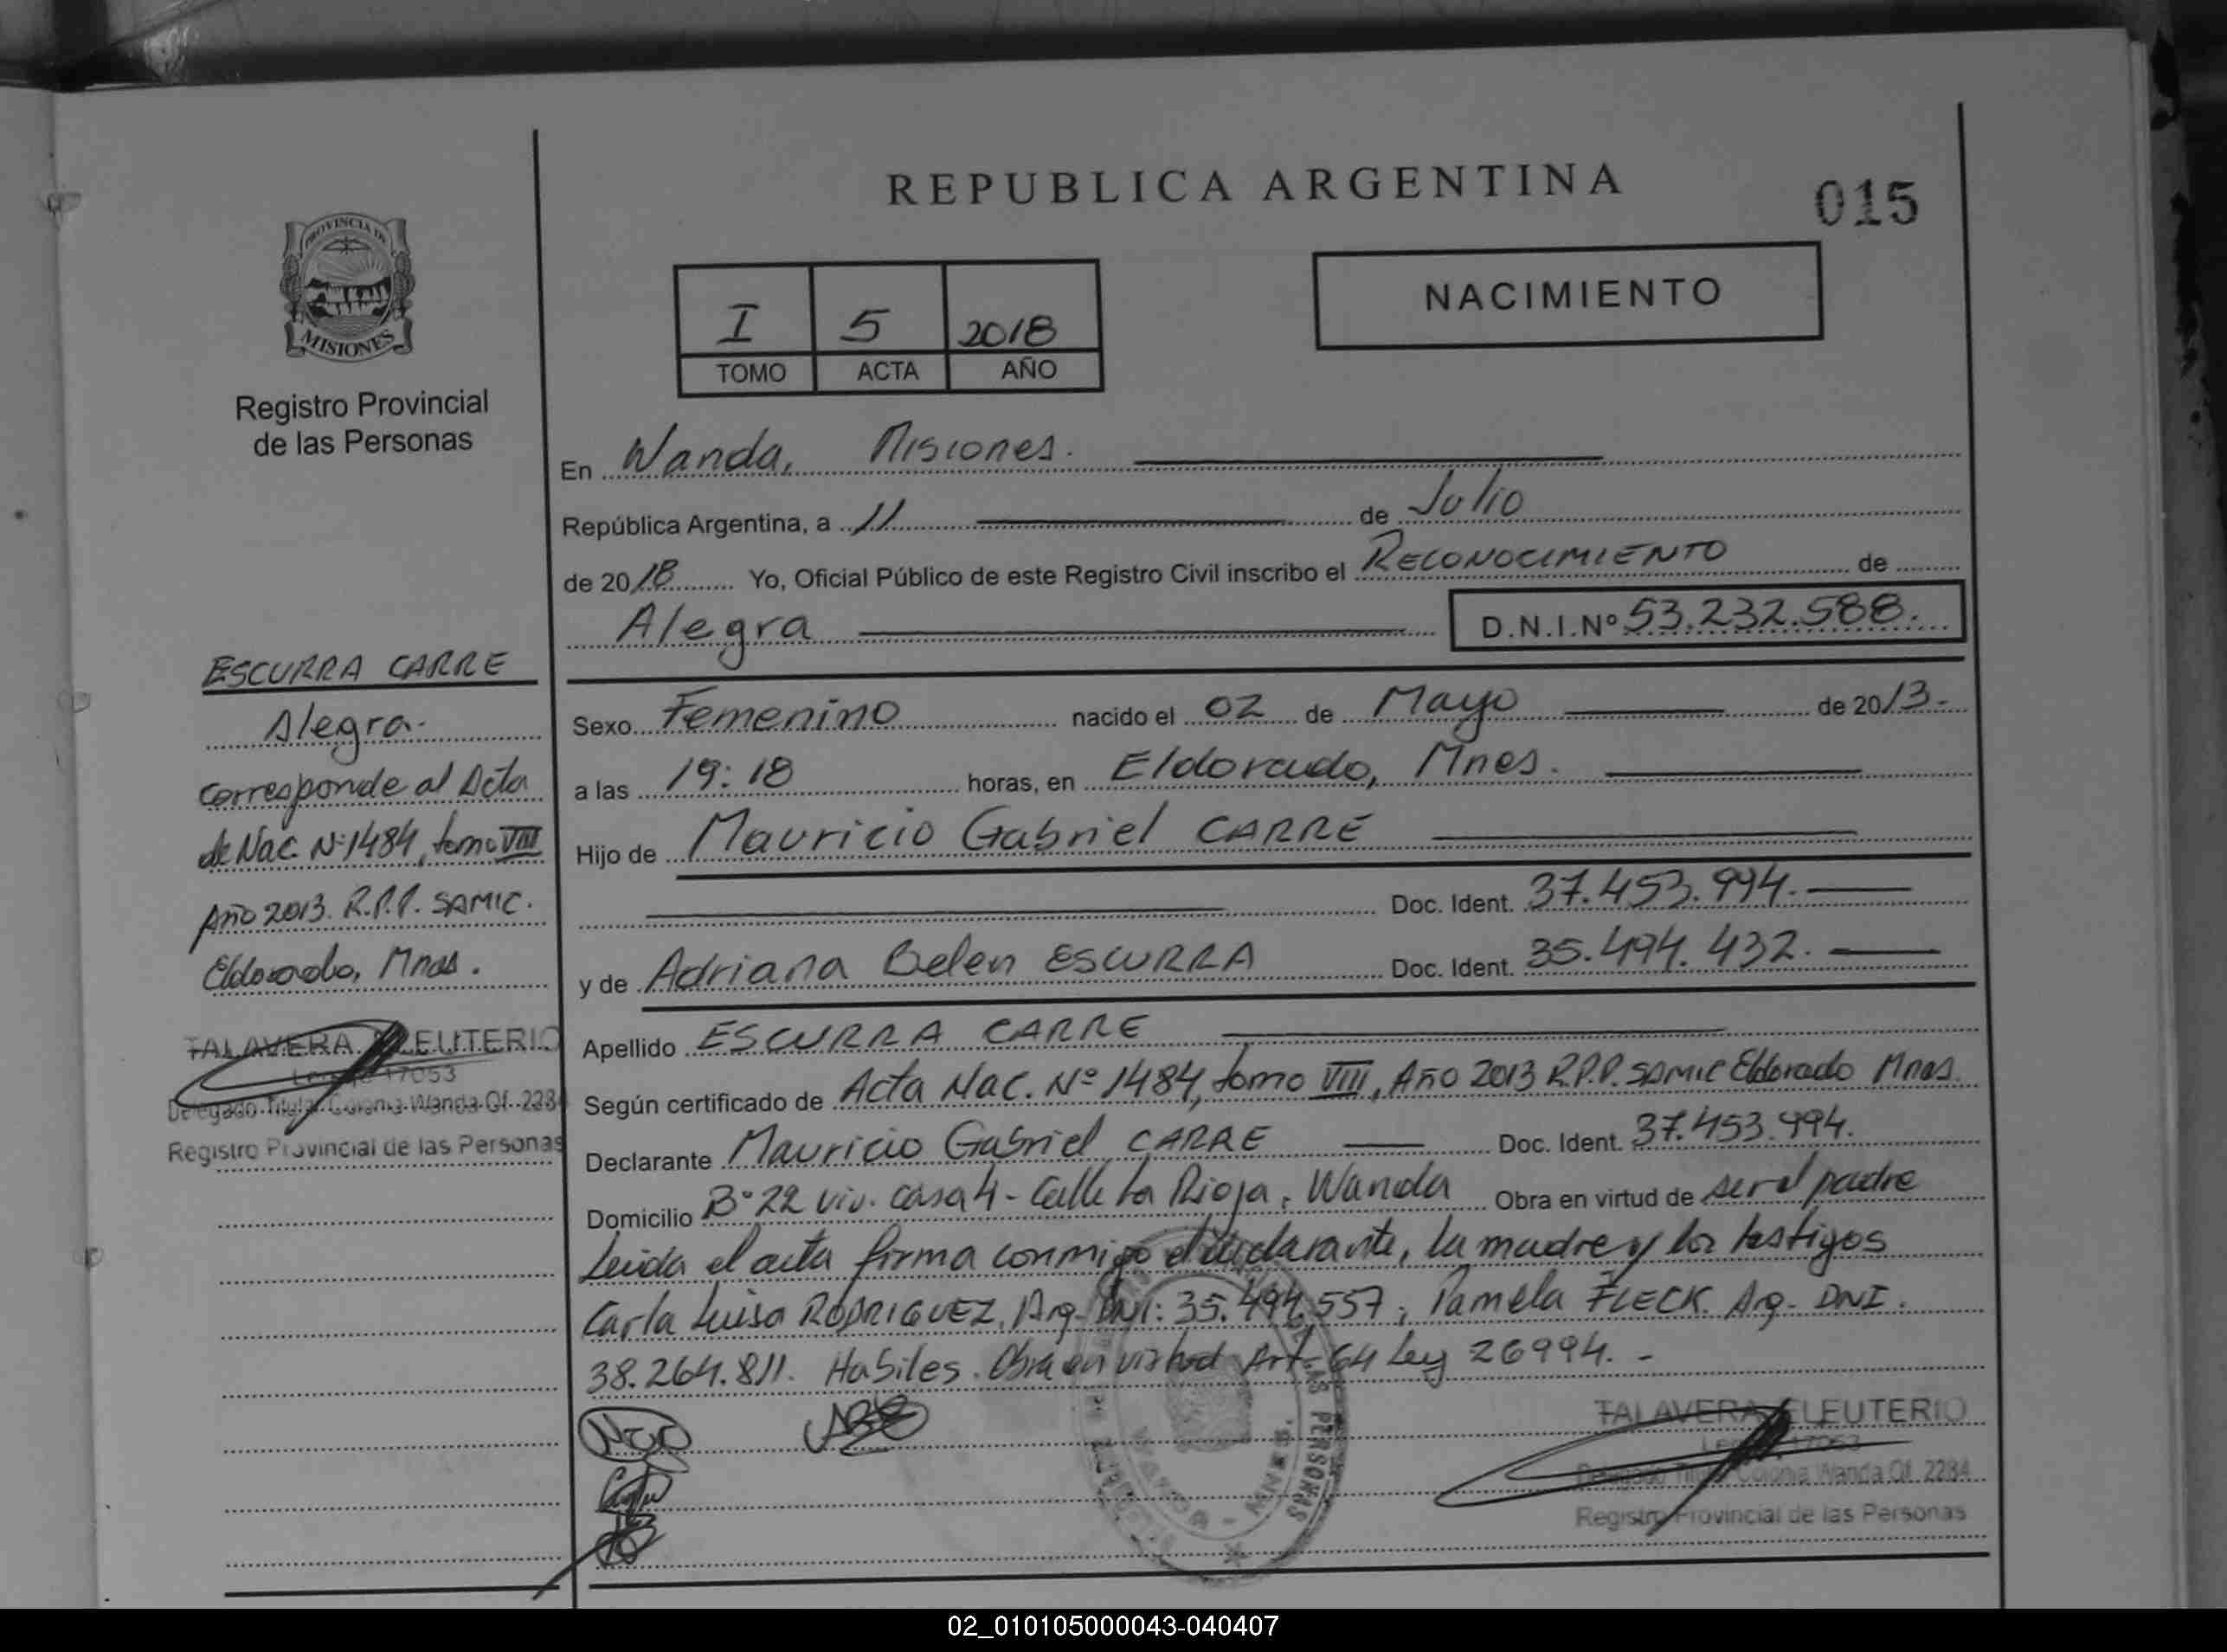 REPUBLICA ARGENTINA
015
PROVINCIA DE
MISIONES
Registro Provincial
de las Personas
I 5 2018
TOMO ACTA AÑO
NACIMIENTO
En Wanda, Misiones.
República Argentina, a 11 de Julio
de 2018 Yo, Oficial Público de este Registro Civil inscribo el RECONOCIMIENTO de
Alegra D.N.I.Nº 53.232.588.
Sexo Femenino nacido el 02 de Mayo de 2013-
a las 19:18 horas, en Eldorado, Mnes.
Hijo de Mauricio Gabriel CARRE
Doc. Ident. 37.453.994.
y de Adriana Belen ESCURRA Doc. Ident. 35.494.432.
Apellido ESCURRA CARRE
Según certificado de Acta Nac. Nº 1484, tomo VIII, Año 2013 R.P.P. SAMIC Eldorado Mnes.
Declarante Mauricio Gabriel CARRE Doc. Ident. 37.453.994.
Domicilio Bº 22 viv. casa 4 - Calle La Rioja, Wanda Obra en virtud de ser el padre
Leida el acta firma conmigo el declarante, la madre y los testigos
Carla Luisa RODRIGUEZ, Arg. DNI: 35.494.557, Pamela FLECK. Arg. DNI.
38.264.811. Habiles. Obra en virtud Art. 64 Ley 26994. -
ESCURRA CARRE
Alegra.
Corresponde al Acta
de Nac. Nº 1484, tomo VIII
Año 2013. R.P.P. SAMIC.
Eldorado, Mnes.
TALAVERA ELEUTERIO
17053
Delegado Titular Colonia Wanda Of. 2284
Registro Provincial de las Personas
TALAVERA ELEUTERIO
17053
Delegado Titular Colonia Wanda Of. 2284
Registro Provincial de las Personas
LAS PERSONAS
02_010105000043-040407